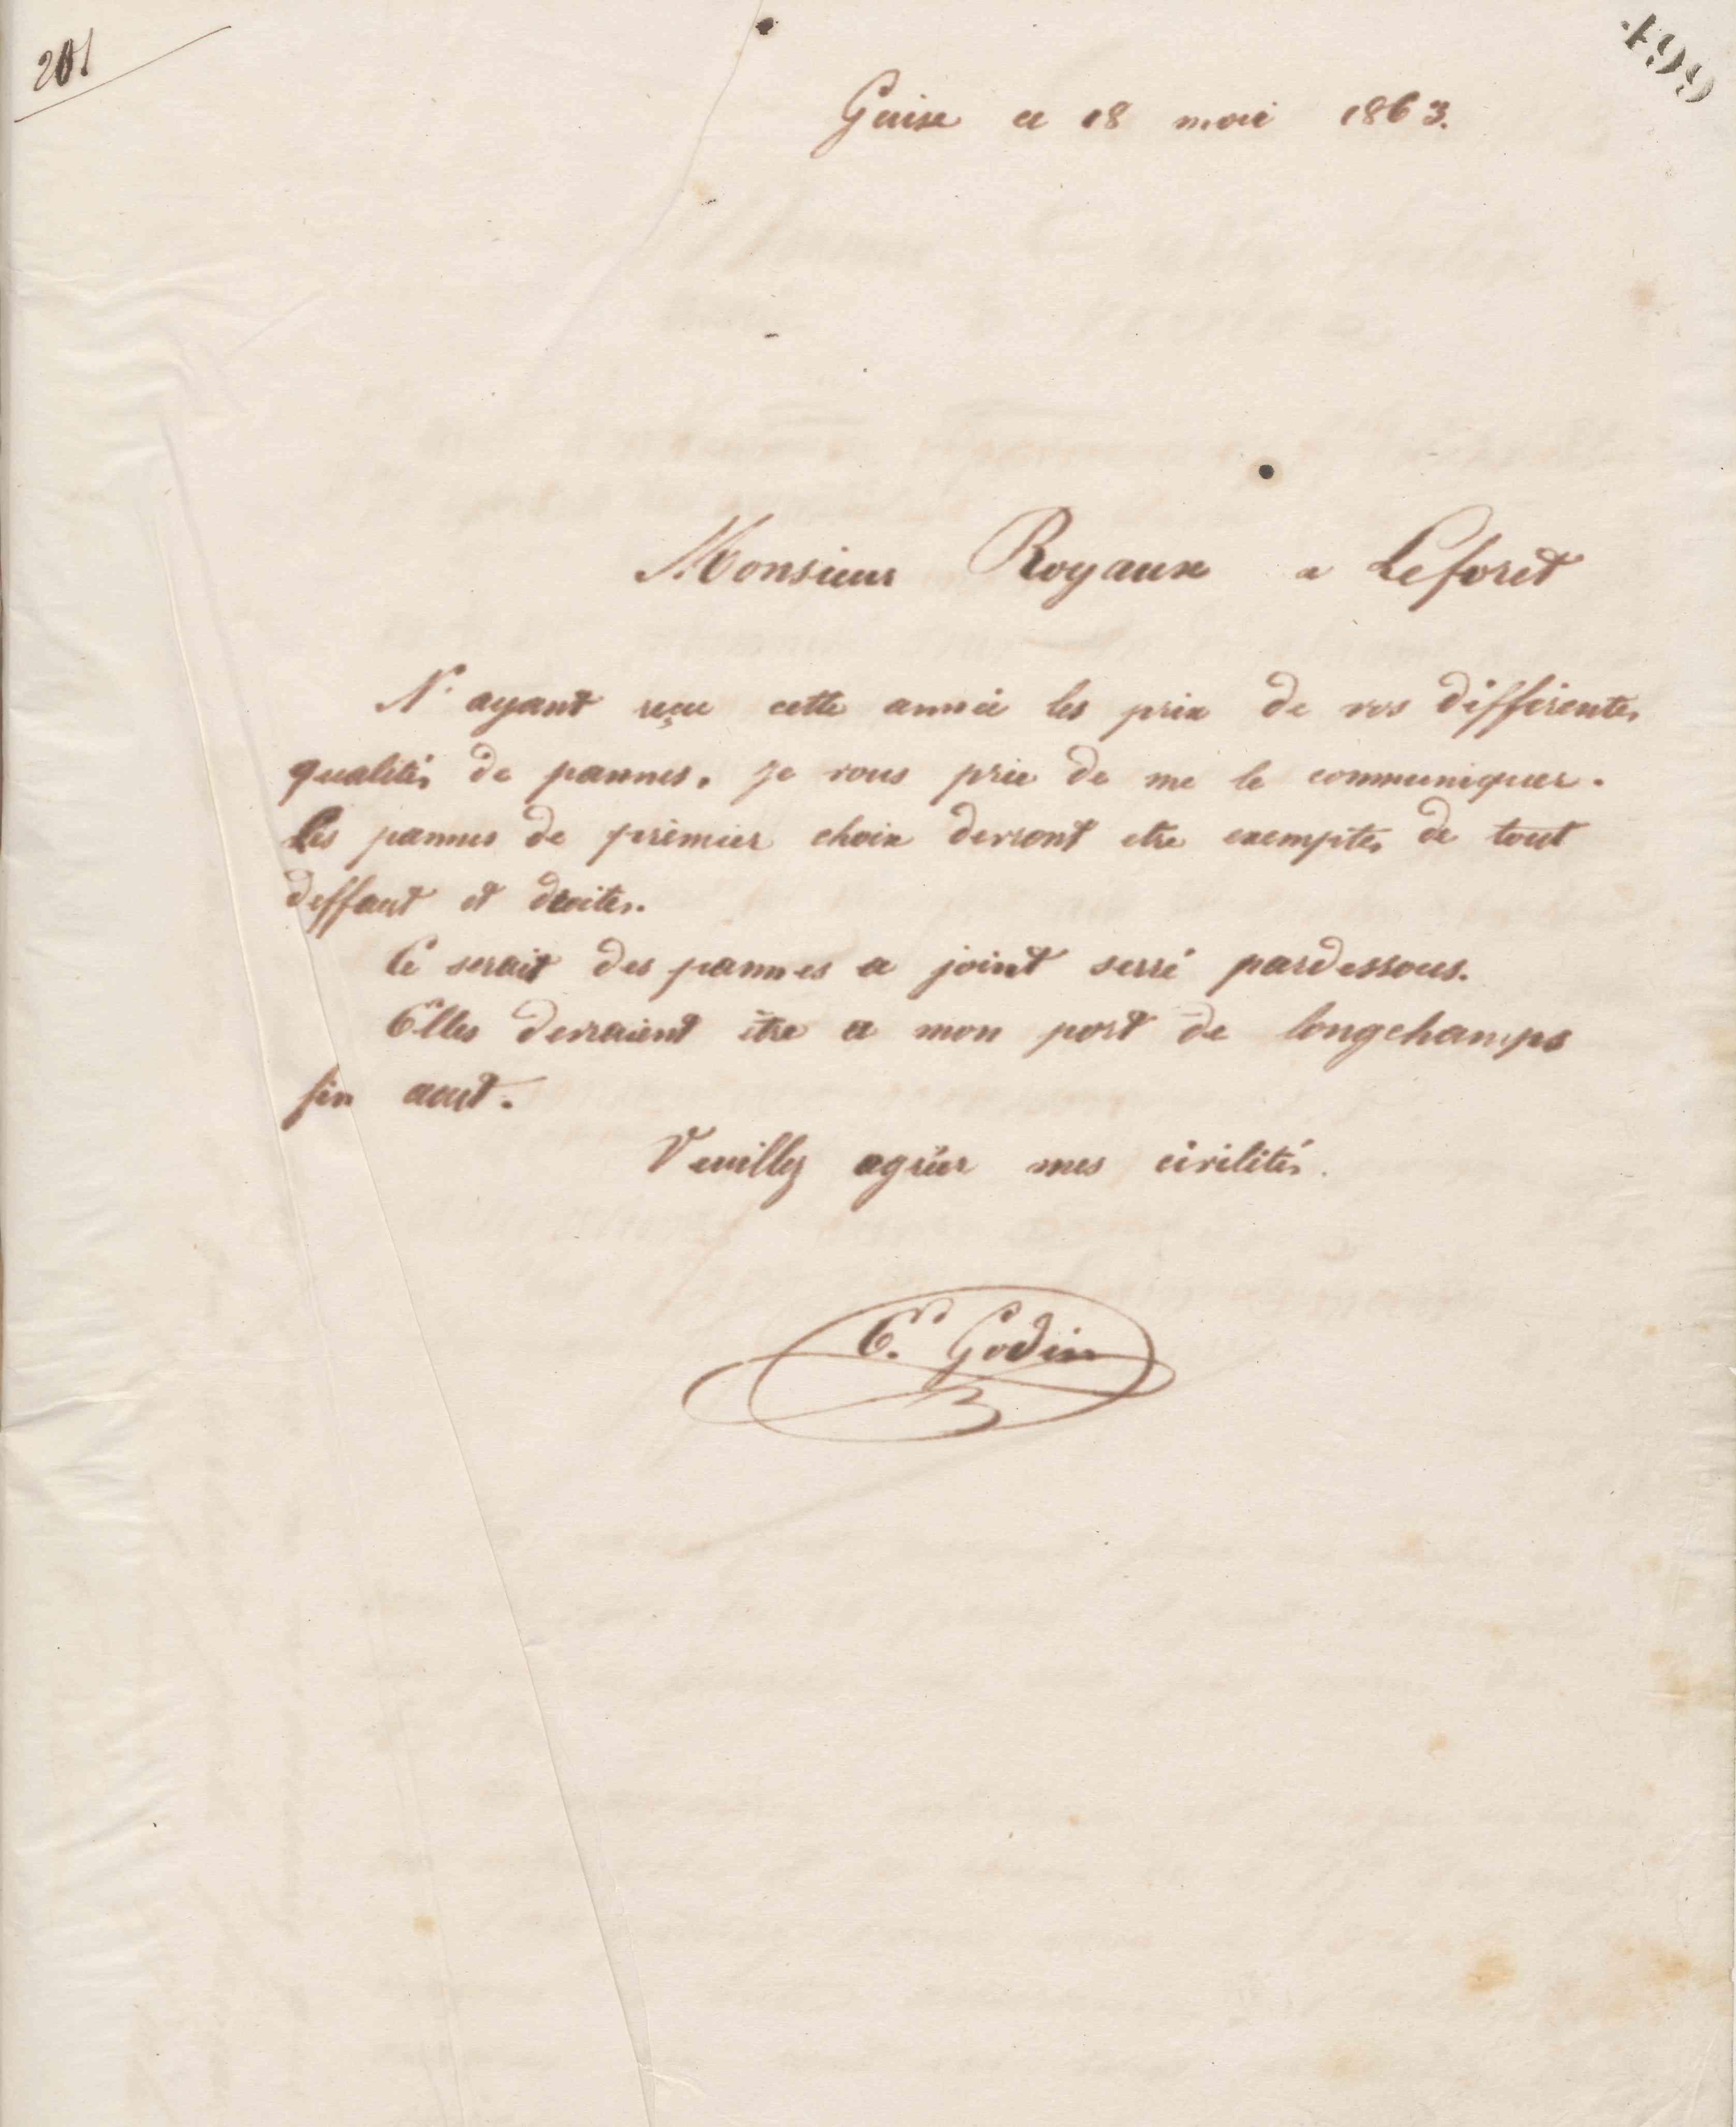 201
499
Guise ce 18 mai 1863.
Monsieur Royaux a Leforêt
N'ayant reçu cette année les prix de vos différentes
qualités de pannes, je vous prie de me le communiquer.
Les pannes de prémier choix devront etre exemptes de tout
deffaut et droites.
Ce serait des pannes a joint serré pardessous.
Elles devraient être a mon port de longchamps
fin aout.
Veuillez agréer mes civilités.
Godin